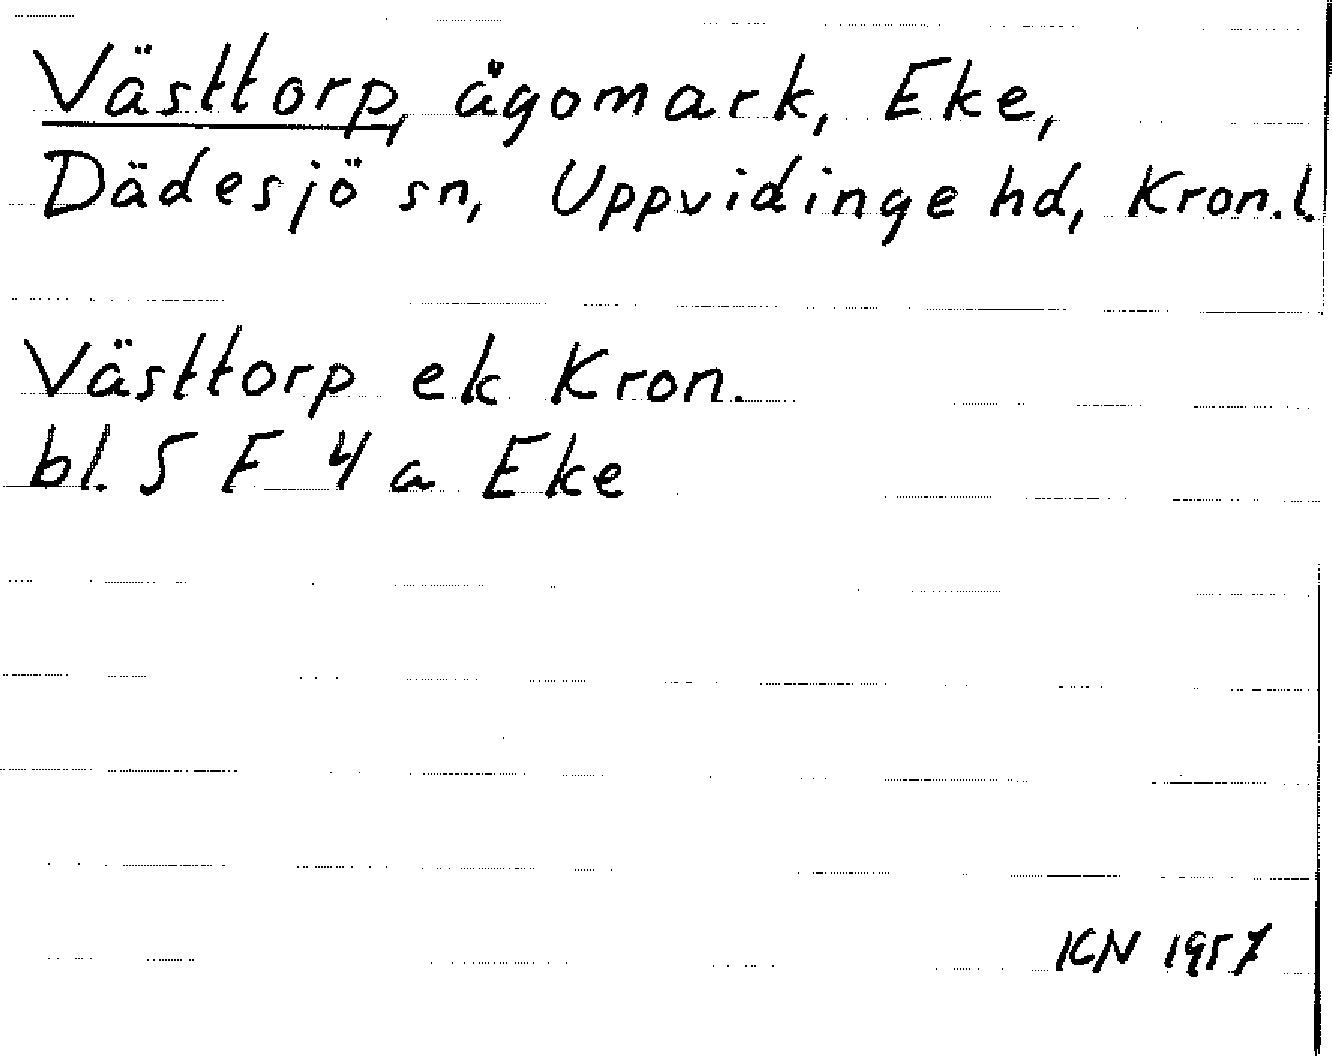 Västtorp, ägomark, Eke,
Dädesjö sn, Uppvidinge hd, Kron.l.
Västtorp ek Kron.
bl. 5 F 4 a Eke
KN 1957